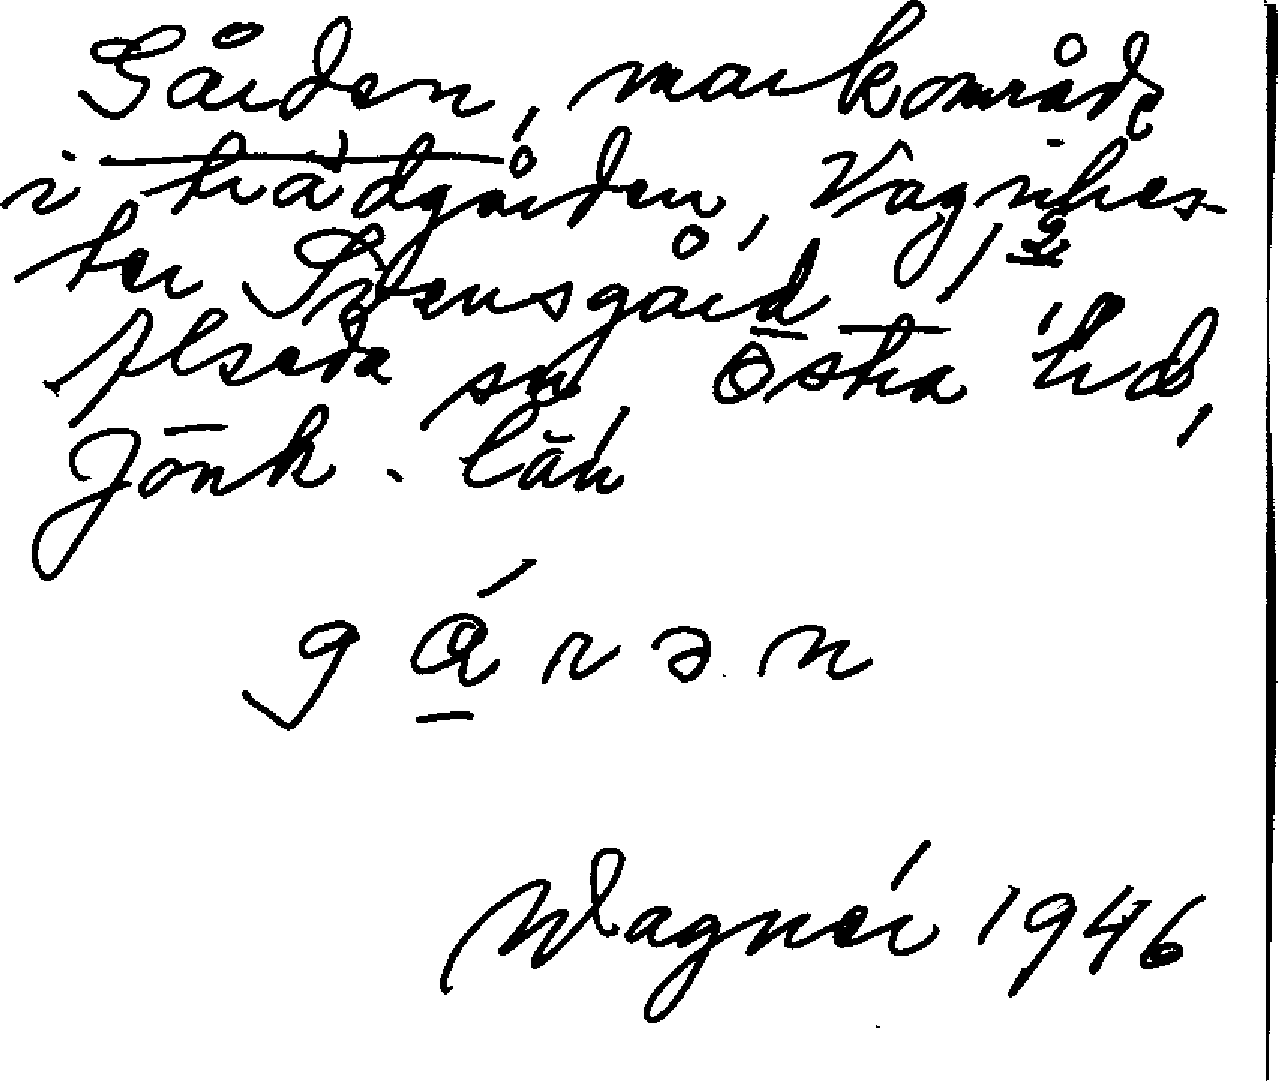 Gården, markområde
i trädgården, Vagnhes-
ter Svensgård, 1 2/
Alseda sn, Östra hd,
Jönk. län
g á r ə n
Wagnér 1946